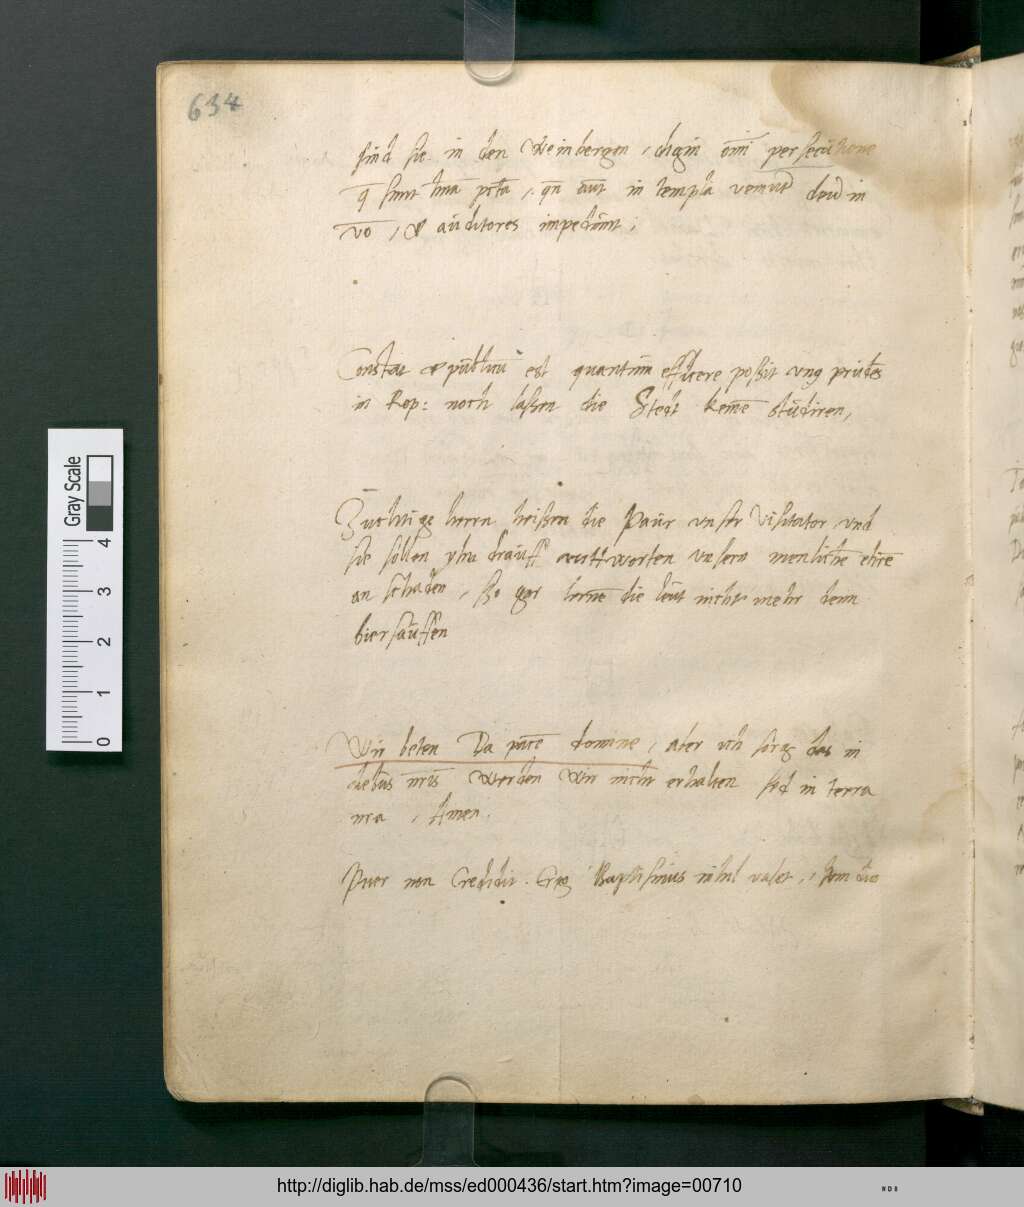 634
sind sie in den Weinbergen, digni omni persecutione
q sunt in templa in
vo, & auditores impediunt;
Constat & publicum est quantum efficere possit unus prudens
in Rep: noch lassen die Stedt keine studiren,
Zuchtige herrn heissen die Paur unser Visitator und
sie sollen yhn drauff antworten unsern menliche ehre
an schaden, so gar lerne die leut nicht mehr denn
bier sauffen
Wir beten Da pace domine, aber ich sorg das in
diebus nris werden wir nicht erhalten sed in terra
nra, Amen.
Puer non credidit. Ergo Baptismus nihil valet,
Gray Scale
4
3
2
1
0
http://diglib.hab.de/mss/ed000436/start.htm?image=00710